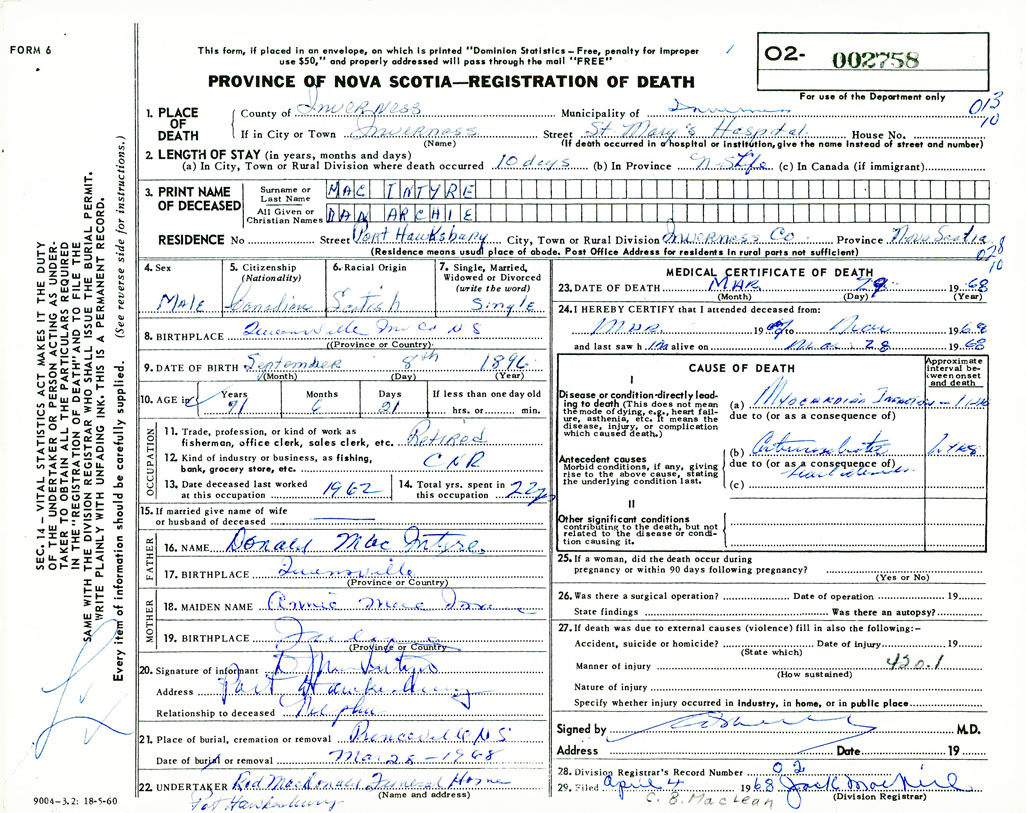 FORM 6
This form, if placed in an envelope, on which is printed "Dominion Statistics – Free, penalty for improper
use $50," and properly addressed will pass through the mail "FREE"
02- 002758
For use of the Department only
PROVINCE OF NOVA SCOTIA—REGISTRATION OF DEATH
013
10
1. PLACE OF DEATH
County of Inverness Municipality of Inverness
If in City or Town Inverness Street St Mary's Hospital House No.
(Name) (If death occurred in a hospital or institution, give the name instead of street and number)
2. LENGTH OF STAY (in years, months and days)
(a) In City, Town or Rural Division where death occurred 10 days (b) In Province N-S Life (c) In Canada (if immigrant)
3. PRINT NAME OF DECEASED
Surname or Last Name MAC INTYRE
All Given or Christian Names DAN ARCHIE
RESIDENCE No Street Port Hawksbury City, Town or Rural Division Inverness Co Province Nova Scotia
(Residence means usual place of abode. Post Office Address for residents in rural parts not sufficient)
028
10
4. Sex
Male
5. Citizenship (Nationality)
Canadian
6. Racial Origin
Scotish
7. Single, Married, Widowed or Divorced (write the word)
Single
8. BIRTHPLACE Queensville In Co N S
(Province or Country)
9. DATE OF BIRTH September 8th 1896
(Month) (Day) (Year)
10. AGE in Years Months Days If less than one day old
71 6 21 hrs. or min.
OCCUPATION
11. Trade, profession, or kind of work as fisherman, office clerk, sales clerk, etc. Retired
12. Kind of industry or business, as fishing, bank, grocery store, etc. CNR
13. Date deceased last worked at this occupation 1962
14. Total yrs. spent in this occupation 22 yrs
15. If married give name of wife or husband of deceased
FATHER
16. NAME Donald Mac Intyre
17. BIRTHPLACE Queensville
(Province or Country)
MOTHER
18. MAIDEN NAME Annie Mac
19. BIRTHPLACE
(Province or Country)
20. Signature of informant
Address Port Hawkesbury
Relationship to deceased Nephew
21. Place of burial, cremation or removal N S
Date of burial or removal Mar 1968
22. UNDERTAKER Rod MacDonald Funeral Home
(Name and address)
Pt Hawkesbury
9004–3.2: 18-5-60
MEDICAL CERTIFICATE OF DEATH
23. DATE OF DEATH Mar 29 1968
(Month) (Day) (Year)
24. I HEREBY CERTIFY that I attended deceased from:
Mar. 19 to Mar 1968
and last saw h im alive on Mar 28 1968
CAUSE OF DEATH
Approximate interval between onset and death
I
Disease or condition directly leading to death (This does not mean the mode of dying, e.g., heart failure, asthenia, etc. It means the disease, injury, or complication which caused death.)
(a) Myocardial
due to (or as a consequence of)
Antecedent causes
Morbid conditions, if any, giving rise to the above cause, stating the underlying condition last.
(b)
due to (or as a consequence of)
(c)
II
Other significant conditions contributing to the death, but not related to the disease or condition causing it.
25. If a woman, did the death occur during pregnancy or within 90 days following pregnancy?
(Yes or No)
26. Was there a surgical operation? Date of operation 19
State findings Was there an autopsy?
27. If death was due to external causes (violence) fill in also the following:–
Accident, suicide or homicide? Date of injury 19
(State which)
Manner of injury 420.1
(How sustained)
Nature of injury
Specify whether injury occurred in Industry, in home, or in public place
Signed by M.D.
Address Date 19
28. Division Registrar's Record Number 02
29. Filed April 4 1968 Jack MacNeil
C. B. MacLean (Division Registrar)
SEC. 14 – VITAL STATISTICS ACT MAKES IT THE DUTY
OF THE UNDERTAKER OR PERSON ACTING AS UNDER-
TAKER TO OBTAIN ALL THE PARTICULARS REQUIRED
IN THE "REGISTRATION OF DEATH" AND TO FILE THE
SAME WITH THE DIVISION REGISTRAR WHO SHALL ISSUE THE BURIAL PERMIT.
WRITE PLAINLY WITH UNFADING INK. THIS IS A PERMANENT RECORD.
Every item of information should be carefully supplied. (See reverse side for instructions.)